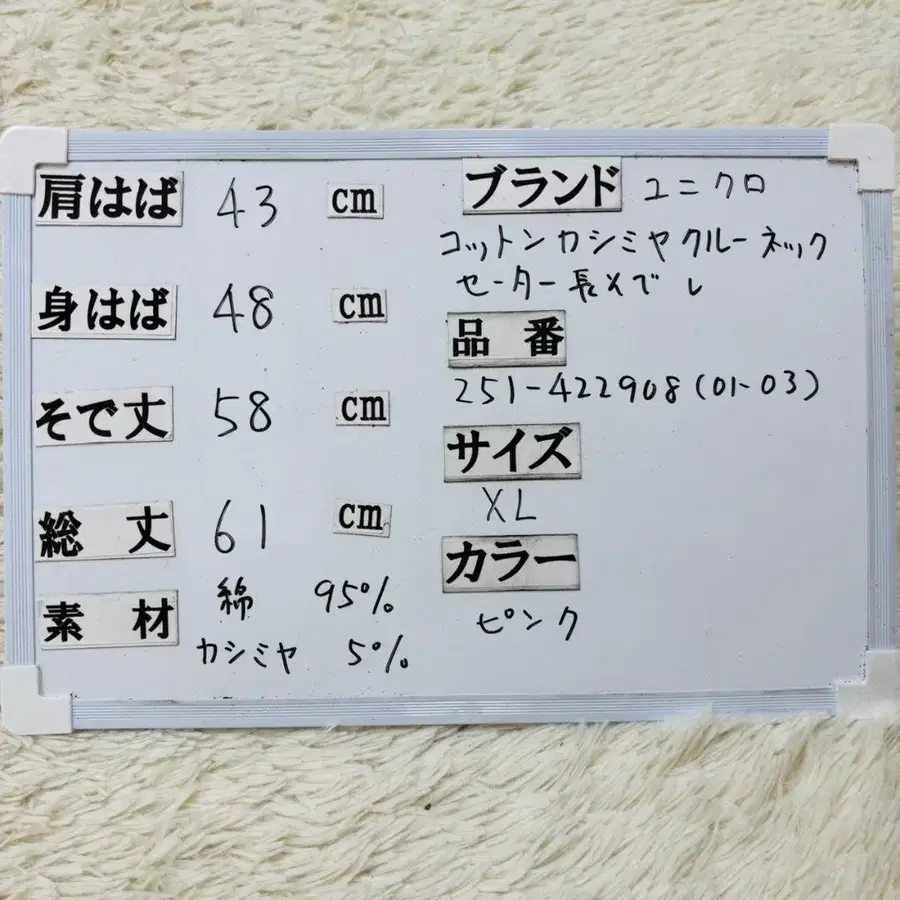 肩はば 43 cm
身はば 48 cm
そで丈 58 cm
総丈 61 cm
素材 綿 95%
カシミヤ 5%
ブランド ユニクロ
コットンカシミヤクルーネック
セーター長そで
品番
251-422908(01-03)
サイズ
XL
カラー
ピンク